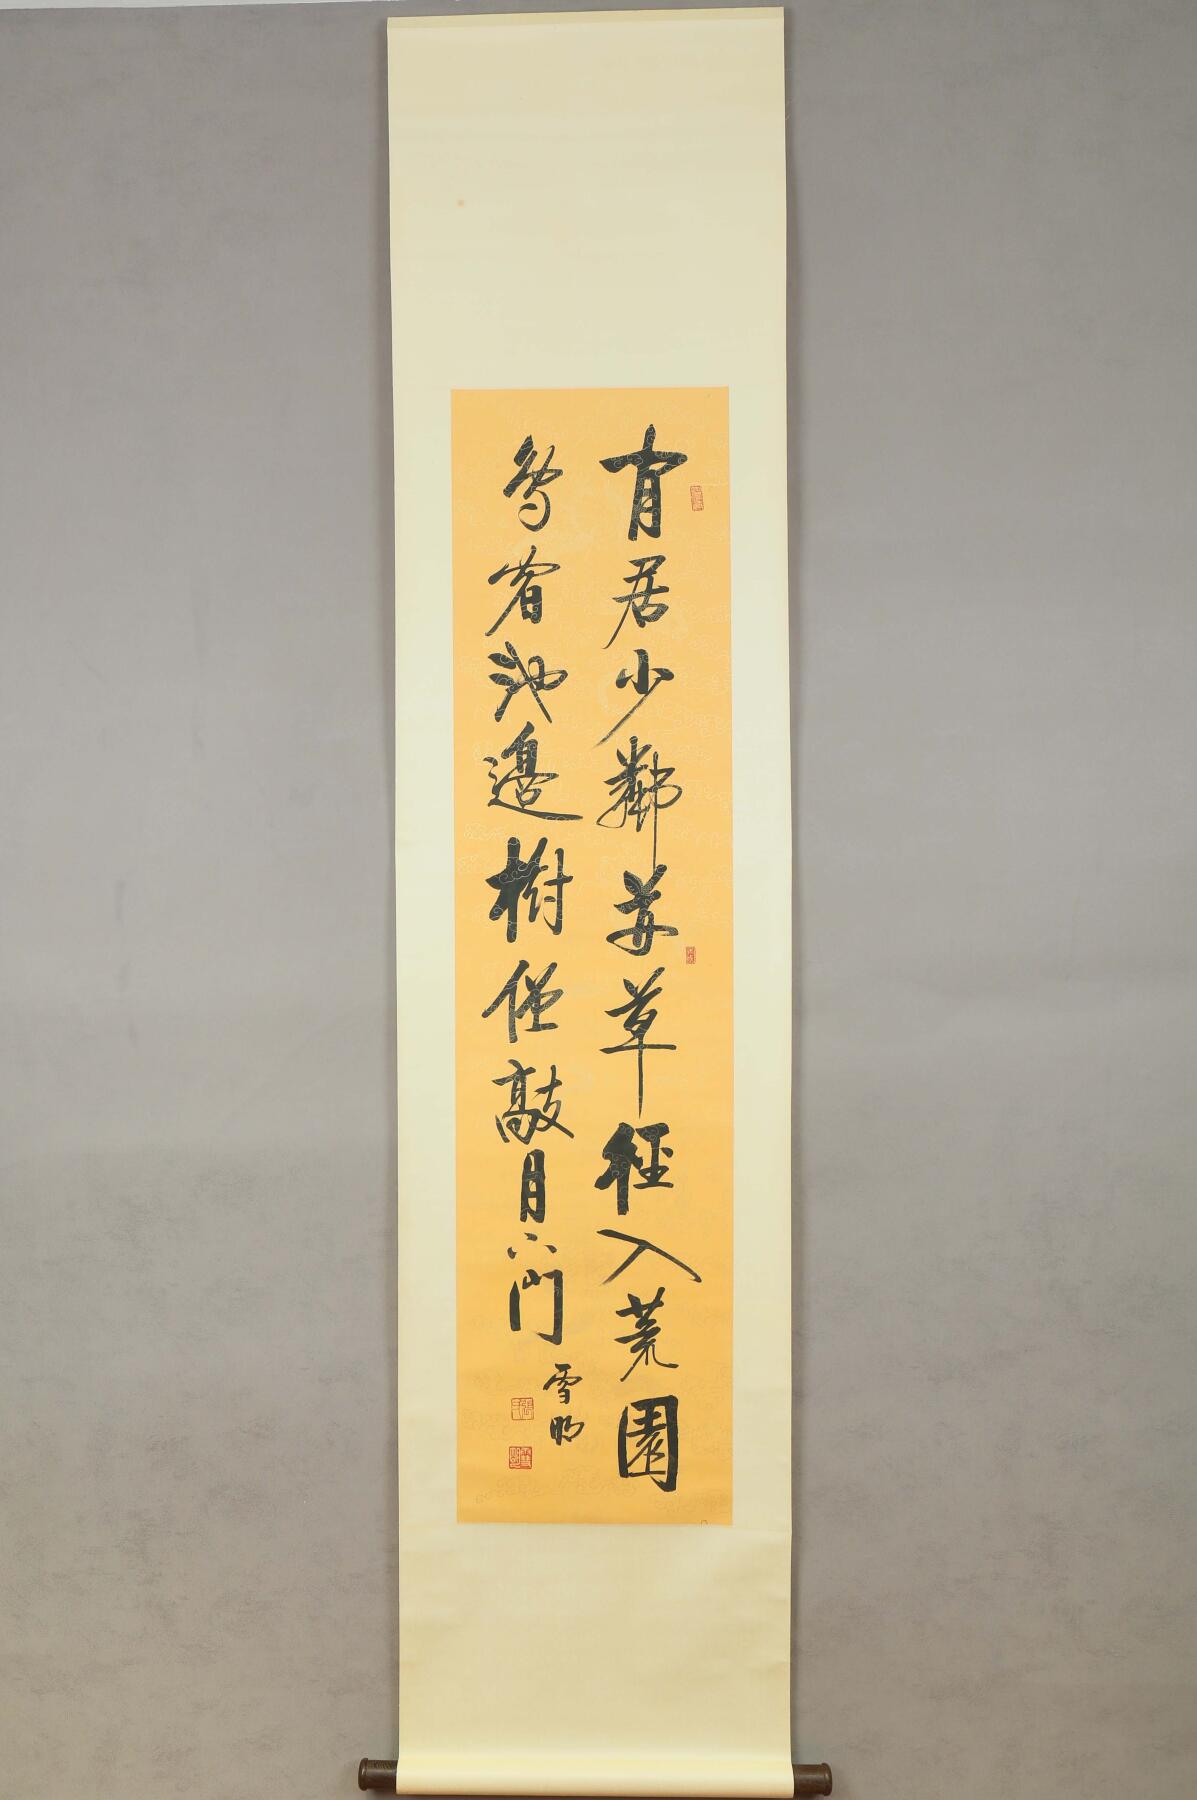 閒居少鄰並草徑入荒園
鳥宿池邊樹僧敲月下門
雪明